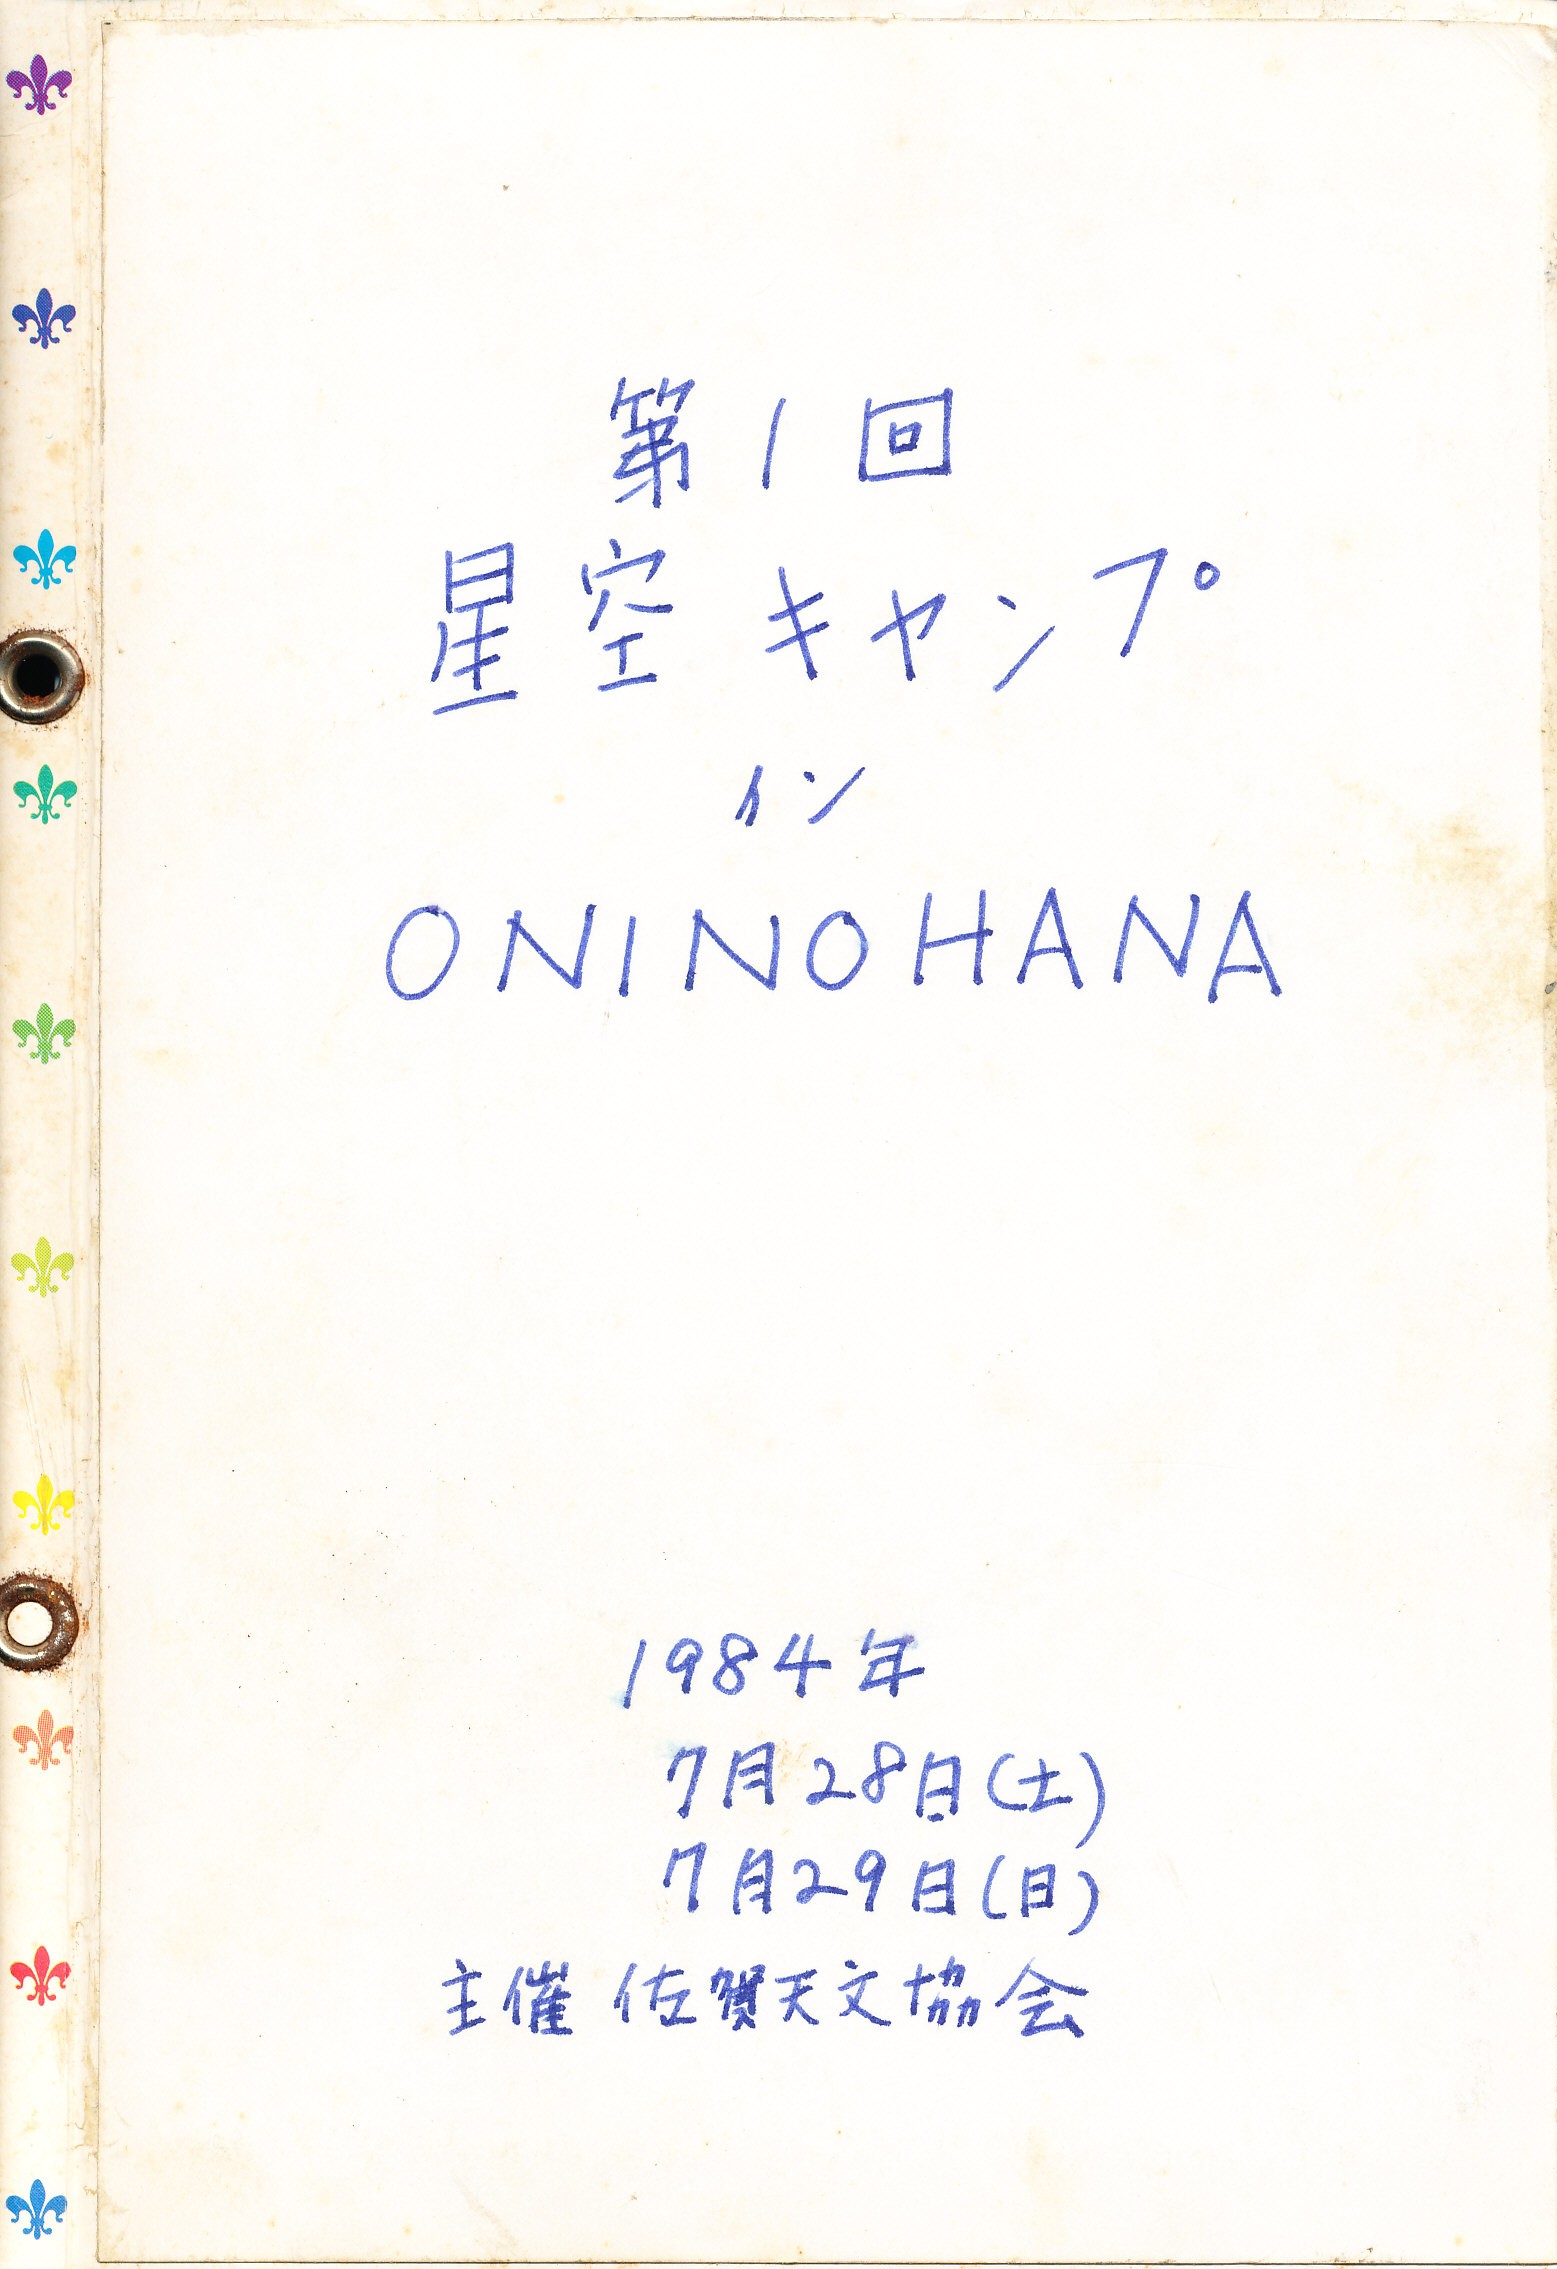 第1回
星空キャンプ
イン
ONINOHANA
1984年
7月28日(土)
7月29日(日)
主催 佐賀天文協会